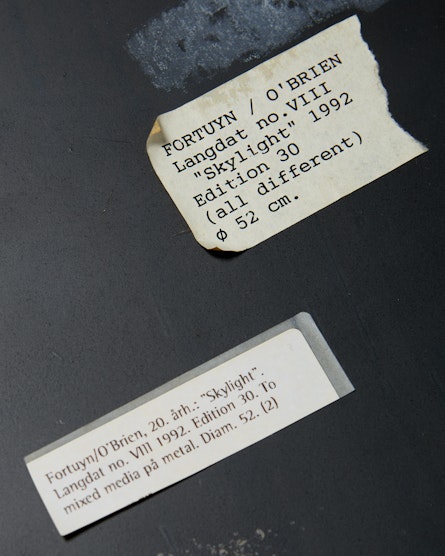 FORTUYN / O'BRIEN
Langdat no.VIII
"Skylight" 1992
Edition 30
(all different)
ø 52 cm.
Fortuyn/O'Brien, 20. årh.: "Skylight".
Langdat no. VIII 1992. Edition 30. To
mixed media på metal. Diam. 52. (2)